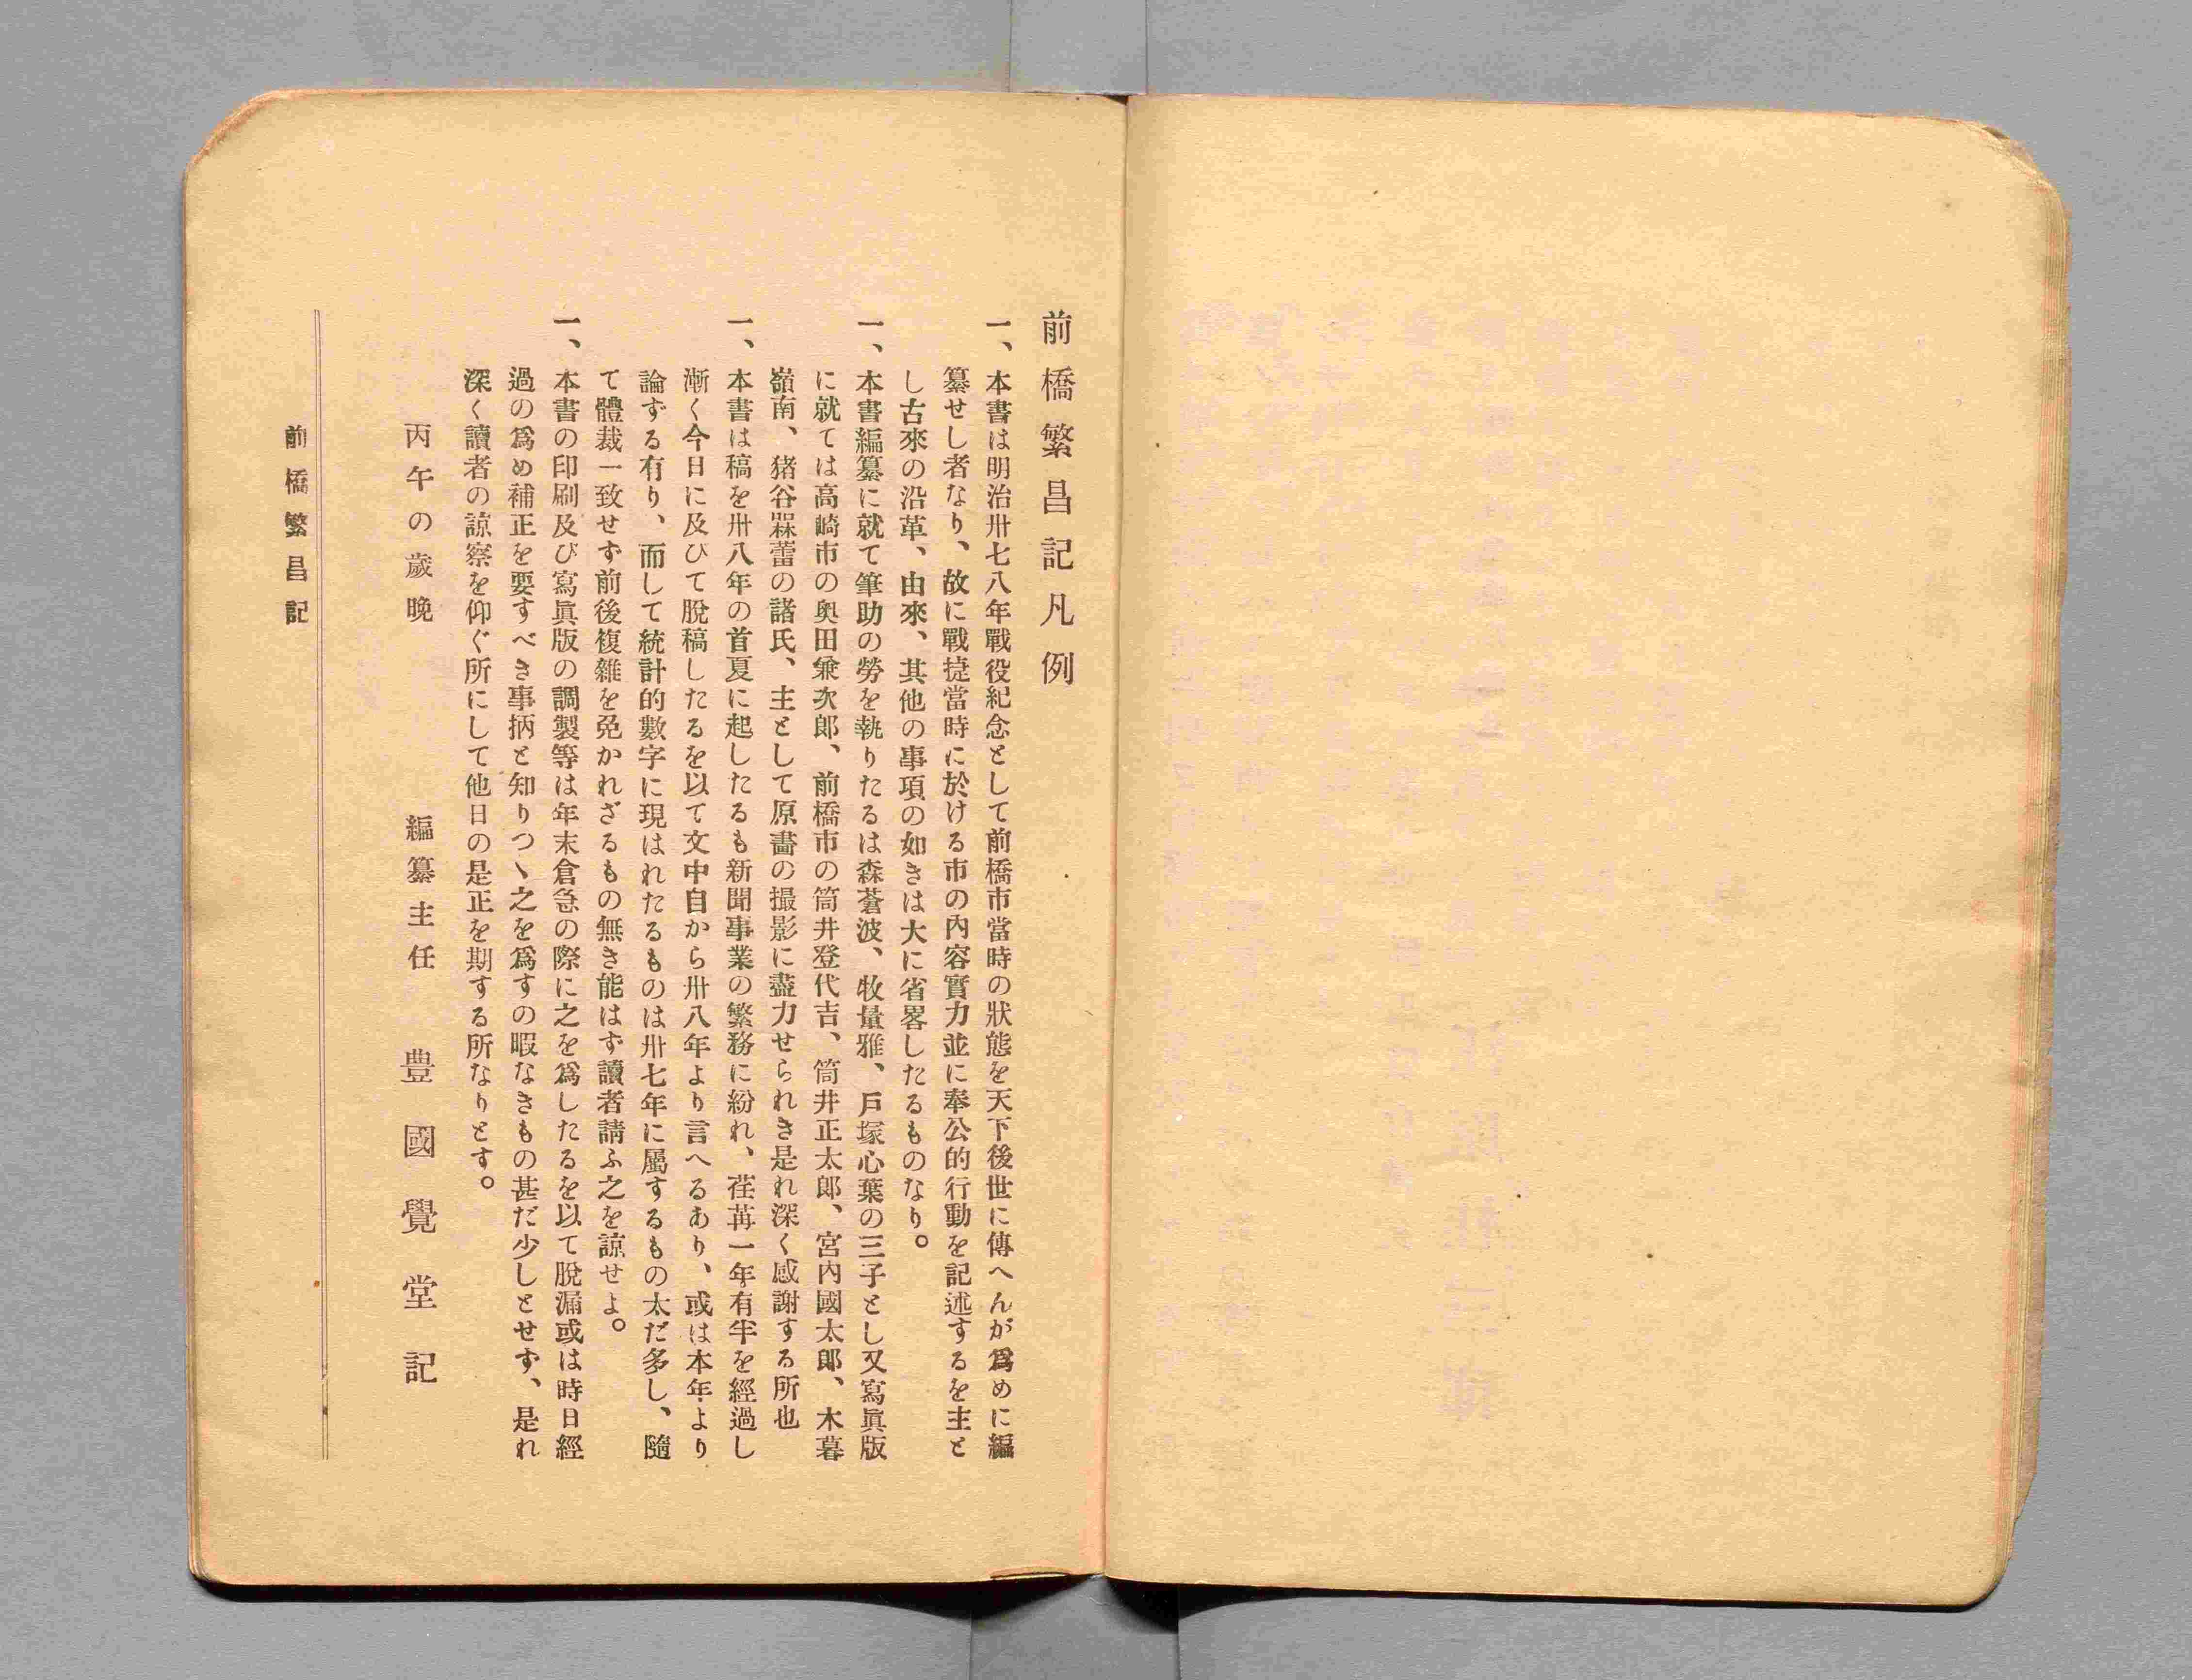 前橋繁昌記凡例
一、本書は明治卅七八年戰役紀念として前橋市當時の狀態を天下後世に傳へんが爲めに編
纂せし者なり、故に戰捷當時に於ける市の內容實力並に奉公的行動を記述するを主と
し古來の沿革、由來、其他の事項の如きは大に省畧したるものなり。
一、本書編纂に就て筆助の勞を執りたるは森蒼波、牧量雅、戶塚心葉の三子とし又寫眞版
に就ては高崎市の奥田兼次郎、前橋市の筒井登代吉、筒井正太郎、宮內國太郎、木暮
嶺南、猪谷霖蕾の諸氏、主として原畵の撮影に盡力せられき是れ深く感謝する所也
一、本書は稿を卅八年の首夏に起したるも新聞事業の繁務に紛れ、荏苒一年有半を經過し
漸く今日に及びて脫稿したるを以て文中自から卅八年より言へるあり、或は本年より
論ずる有り、而して統計的數字に現はれたるものは卅七年に屬するもの太だ多し、隨
て體裁一致せず前後複雜を免かれざるもの無き能はず讀者請ふ之を諒せよ。
一、本書の印刷及び寫眞版の調製等は年末倉急の際に之を爲したるを以て脫漏或は時日經
過の爲め補正を要すべき事柄と知りつゝ之を爲すの暇なきもの甚だ少しとせず、是れ
深く讀者の諒察を仰ぐ所にして他日の是正を期する所なりとす。
丙午の歲晚　編纂主任　豊國覺堂記
前橋繁昌記